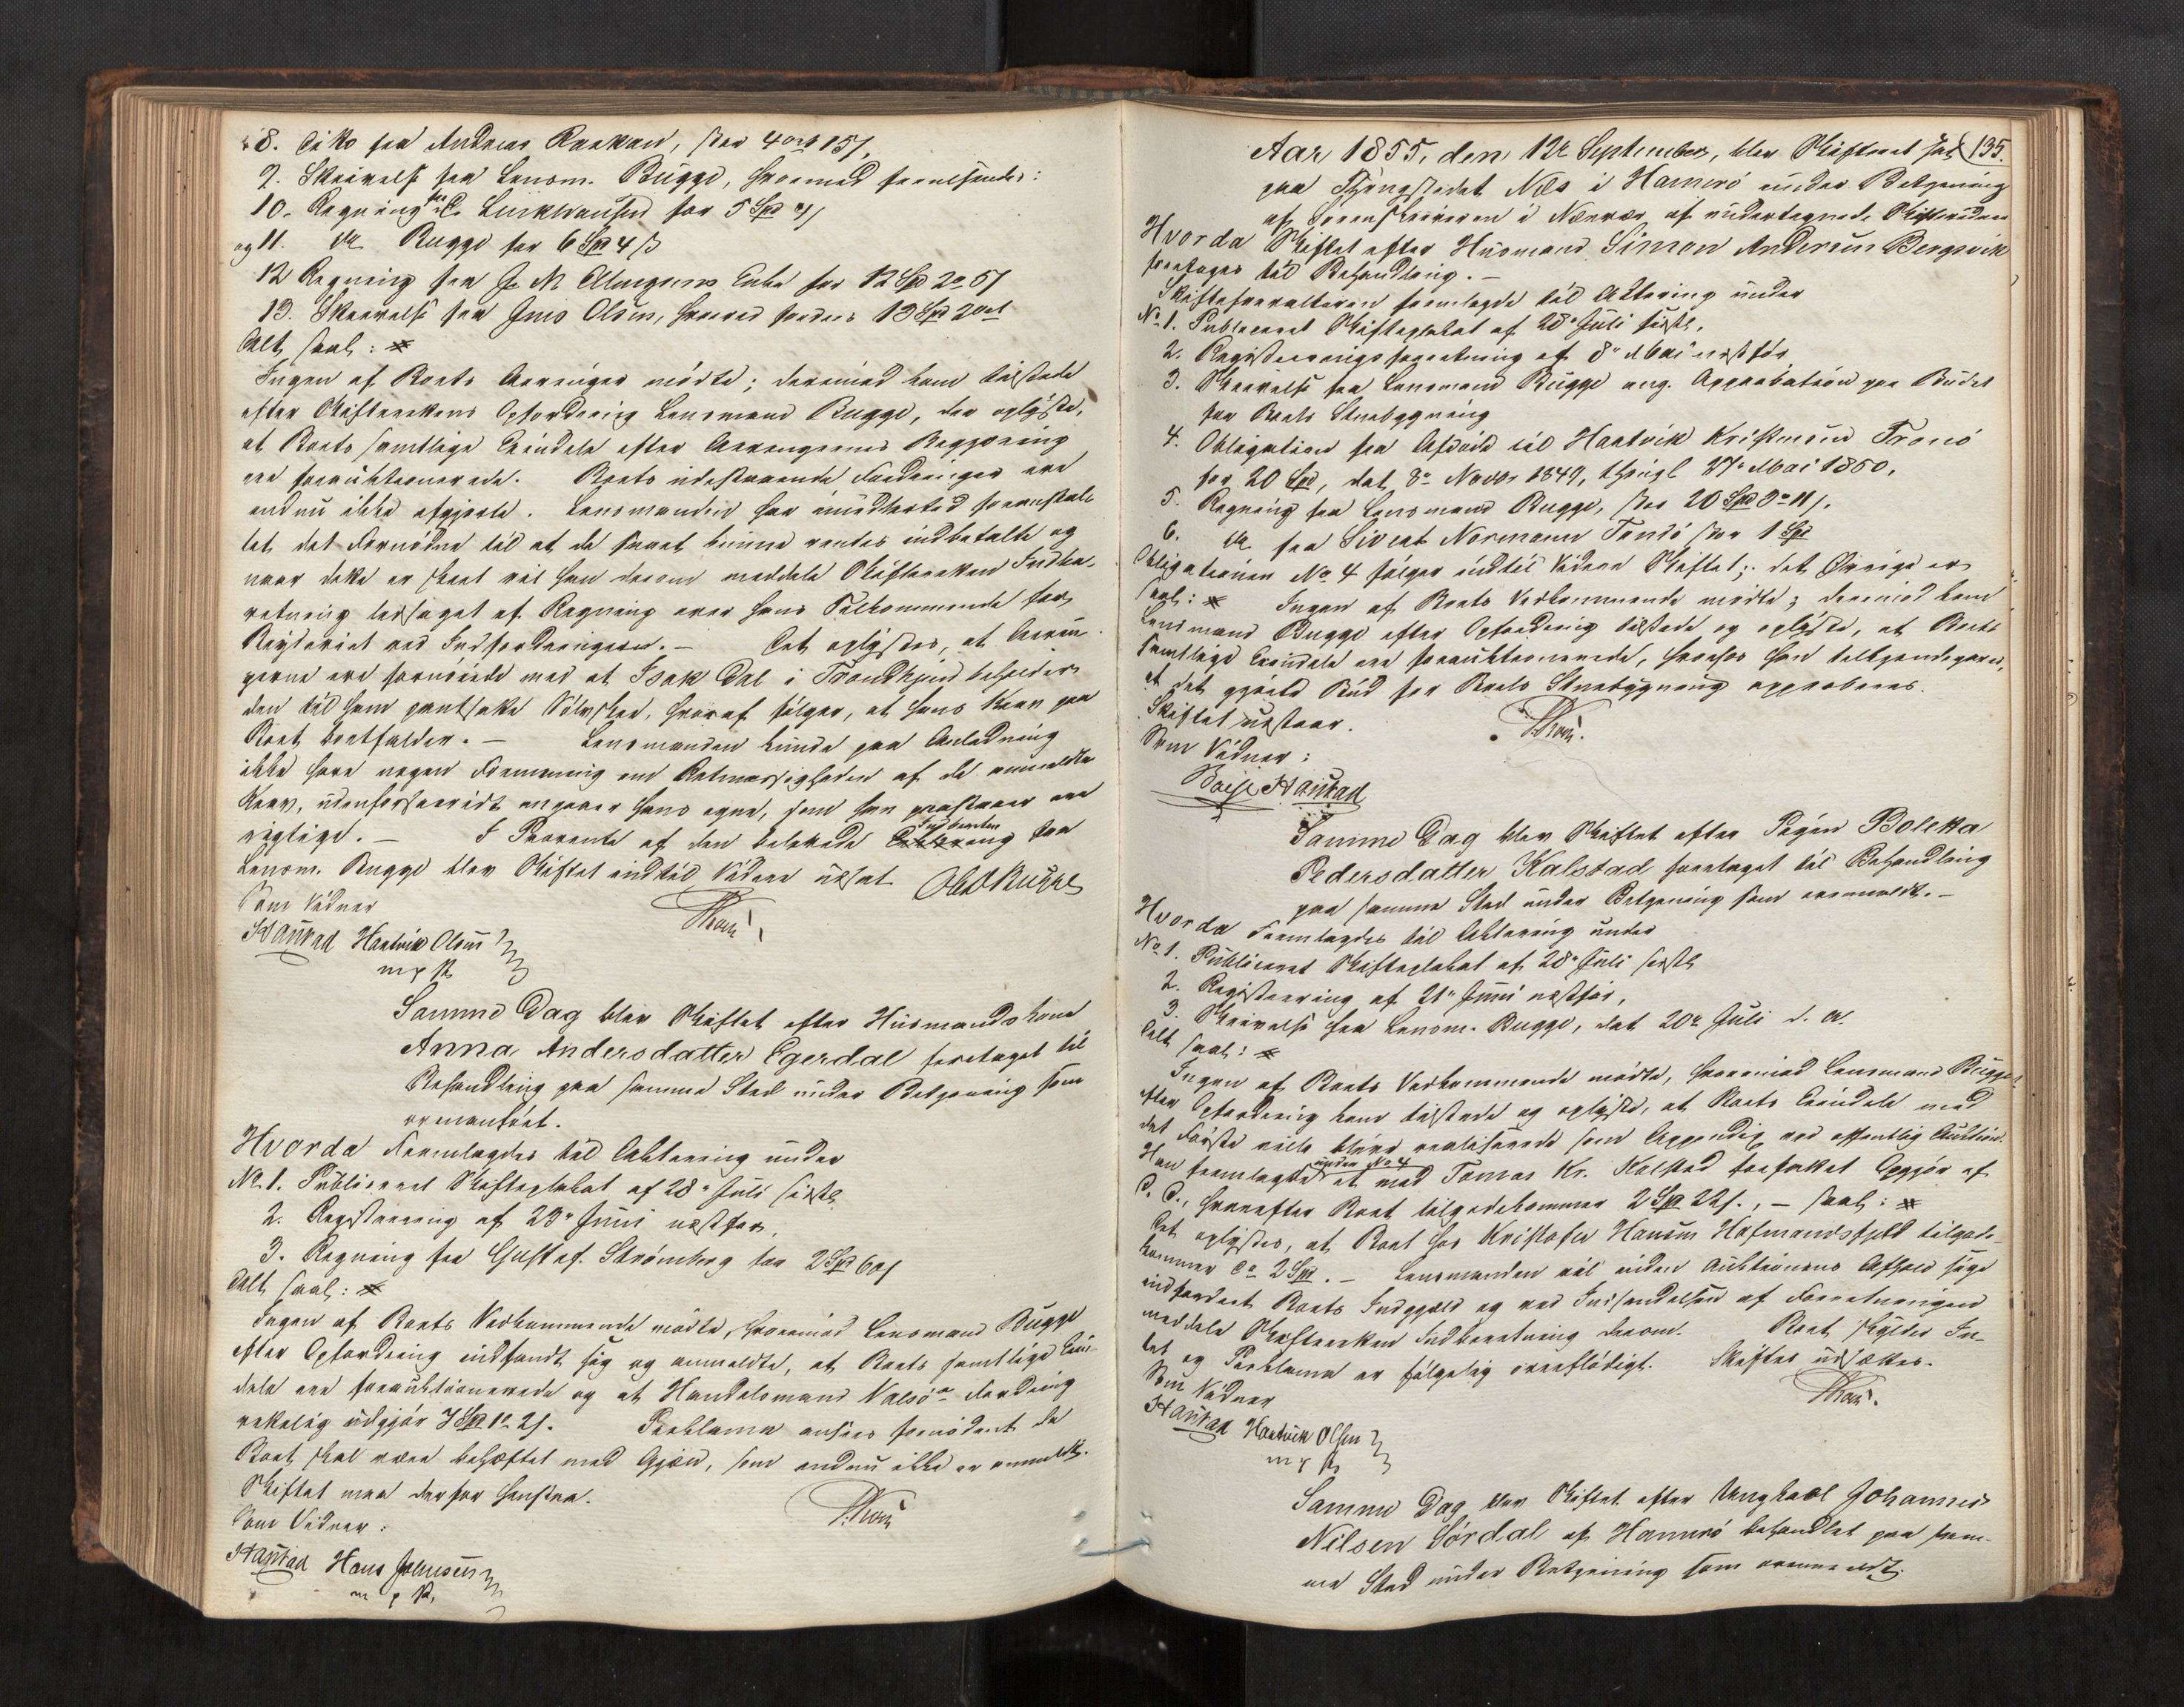 8. Dito fra Andreas Raakan, stor 4 ort 15 s,
9. Skrivelse fra Lensm. Bugge, hvormed fremsendes:
10. Regning fra C. Linkhausen for 5 Spd
og 11. do Bugge for 6 Spd 4 s
12 Regning fra J. M. Enke for 12 Spd 2 o 5 s
13. Skrivelse fra Jens Olsen, hvorved fordres 13 Spd 2 ort
Alt saal: #
Ingen af Boets Arvinger mødte; derimod kom tilstede
efter Skifterettens Opfordring Lensmand Bugge, der oplyste,
at Boets samtlige Eiendele efter Arvingernes Begjæring
ere forauktionerede. Boets udestaaende Fordringer ere
endnu ikke afgjorte. Lensmanden har imidlertid foranstal-
tet det Fornødne til at de snart kunne ventes indbetalte og
naar dette er skeet vil han derom meddele Skifteretten Indbe-
retning ledsaget af Regning over hans Tilkommende for
Bryderiet ved Indfordringen. – Det oplystes, at Arvin-
gerne ere fornøiede med at Isak Dal i Trondhjem beholder
den til ham pantsatte Sølvskee, hvoraf følger, at hans Krav paa
Boet bortfalder. – Lensmanden kunde paa Anledning
ikke have nogen Formening om Retmæssigheden af de anmeldte
Krav, udenforsaavidt angaaer hans egne, som han paastaaer ere
rigtige. – I Paavente af den belovede Indberetning fra
Lensm. Bugge blev Skiftet indtil Videre udsat. Ol. Bugge
Som Vidner
Haustad Hartvik Olsen
m p P.
Samme Dag blev Skiftet efter Huusmandskone
Anna Andersdatter Egerdal foretaget til
Behandling paa samme Sted under Betjening som
ovenanført.
Hvorda Fremlagdes til Aktering under
No 1. Publiceret Skifteplakat af 28de Juli sidstl.
2. Registrering af 23de Juni næstfor,
3. Regning fra Gustaf Strømberg stor 2 Spd 60 s
Alt saal: #
Ingen af Boets Vedkommende mødte, hvorimod Lensmand Bugge
efter Opfordring indfandt sig og anmeldte, at Boets samtlige Eien-
dele ere forauktionerede og at Handelsmand Valsøs Fordring
rettelig udgjør 7 Spd 1 o 2 s. Proklama ansees fornødent da
Boet skal være behæftet med Gjæld, som endnu ikke er anmeldt.
Skiftet maa derfor henstaa.
Som Vidner:
Haustad Hans Johnsen
m p P.
135.
Aar 1855, den 12te September, blev Skifteret sat
paa Thingstedet Næs i Hamerø under Betjening
af Sorenskriveren i af undertegnede Skiftevidner
Hvorda Skiftet efter Huusmand Simon Andersen Bergvik
foretages til Behandling. –
Skifteforvalteren fremlagde til Aktering under
No 1. Publiceret Skifteplakat af 28de Juli sidstl.
2. Registreringsforretning af 8de Mai næstfor
3. Skrivelse fra Lensmand Bugge ang. Approbation paa Budet
for Boets Stuebygning
4. Obligation fra Afdøde til Hartvik Kristensen Tranø
for 20 Spd, dat. 8de Novbr 1849, thingl. 27de Mai 1850.
5. Regning fra Lensmand Bugge, stor 20 Spd 3 o 11 s.
6. do fra Sivert Normann Tenfø stor 1 Spd
Obligationen No 4 følger indtil Videre Skiftet; det Øvrige er
saal: # Ingen af Boets Vedkommende mødte; derimod kom
Lensmand Bugge efter Opfordring tilstede og oplyste, at Boets
samtlige Eiendele ere forauktionerede, hvorhos han tilkjendegav,
at det gjorte Bud for Boets Stuebygning approberes.
Skiftet udstaar.
Som Vidner:
Haustad
Samme Dag blev Skiftet efter Pigen Boletta
Pedersdatter Kalstad foretaget til Behandling
paa samme Sted under Betjening som ovenmeldt. –
Hvorda Fremlagdes til Aktering under
No 1. Publiceret Skifteplakat af 28de Juli sidstl.
2. Registrering af 21de Juni næstfor,
3. Skrivelse fra Lensm. Bugge, dat. 20de Juli d. A.
Alt saal: #
Ingen af Boets Vedkommende mødte, hvorimod Lensmand Bugge
efter Opfordring kom tilstede og oplyste, at Boets Eiendele med
det Første ville blive realiserede som Appendix ved offentlig Auktion.
Han fremlagde under No 4 et med Tomas Kr. Kalstad forfattet Opgjør af
D. D., hvorefter Boet tilgodekommer 2 Spd 22 s., – saal: #
Det oplystes, at Boet hos Kristofer Hansen Hofmandsfjeld tilgode-
kommer Ca 2 Spd. – Lensmanden vil inden Auktionens Afhold søge
indfordret Boets Indgjæld og ved Indsendelsen af Forretningen
meddele Skifteretten Indberetning derom. Boet skylder In-
tet og Proklama er følgelig overflødigt. Skiftet udsættes.
Som Vidner
Haustad Hartvik Olsen
m p P.
Samme Dag blev Skiftet efter Ungkarl Johannes
Nilsen Sørdal af Hamerø behandlet paa sam-
me Sted under Betjening som ovenmeldt.